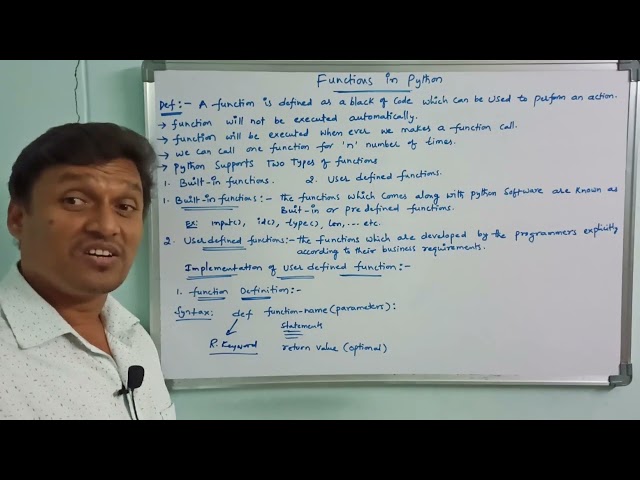 Functions in Python
Def:- A function is defined as a black of code which can be used to perform an action.
→ function will not be executed automatically.
→ function will be executed when ever we makes a function call.
→ we can call one function for 'n' number of times.
→ Python Supports Two Types of functions
1. Built-in functions. 2. User defined functions.
1. Built-in functions:- the functions which comes along with python software are known as
Buit-in or pre defined functions.
Ex: input(), id(), type(), len,... etc.
2. User defined functions:- the functions which are developed by the programmers explicitly
according to their business requirements.
Implementation of User defined function:-
1. function Definition:-
Syntax: def function-name(parameters):
Statements
R. Keyword return value (optional)